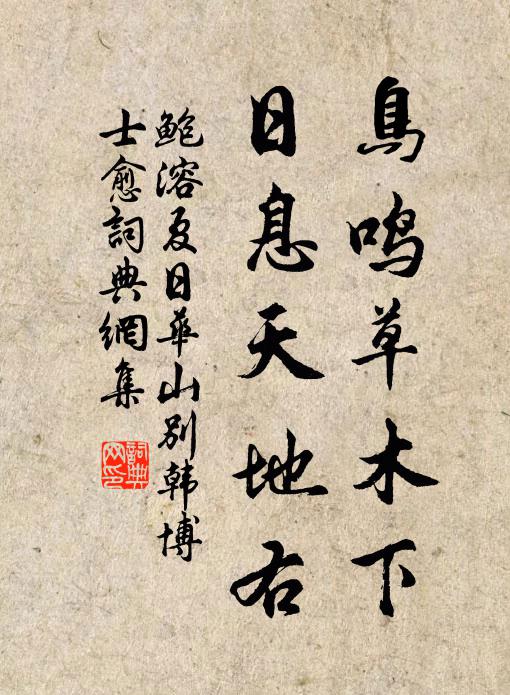 鳥鳴草木下
日息天地右
鮑溶夏日華山別韩博
士愈詞典網集
詞典网印